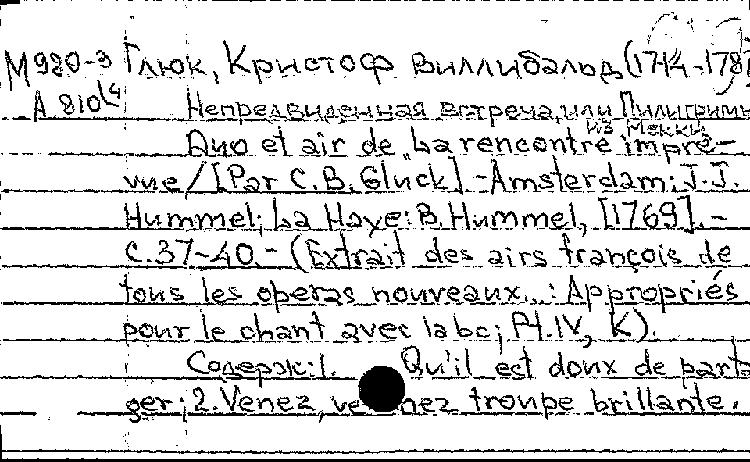 М980-3 Глюк, Кристоф Виллибальд (1714-1787
А 810
Непредвиденная встреча, или Пилигримы
из Мекки.
Duo et air de "La rencontre impré-
vue / [Par C.B. Gluck] - Amsterdam: J.J.
Hummel; La Haye: B. Hummel, [1769]. -
C.37-40. - (Extrait des airs françois de
tous les operas nouveaux...: Appropriés
pour le chant avec la bc; Pt. IV, K).
Содерж: 1. Qu'il est doux de parta
ger; 2. Venez, venez troupe brillante.